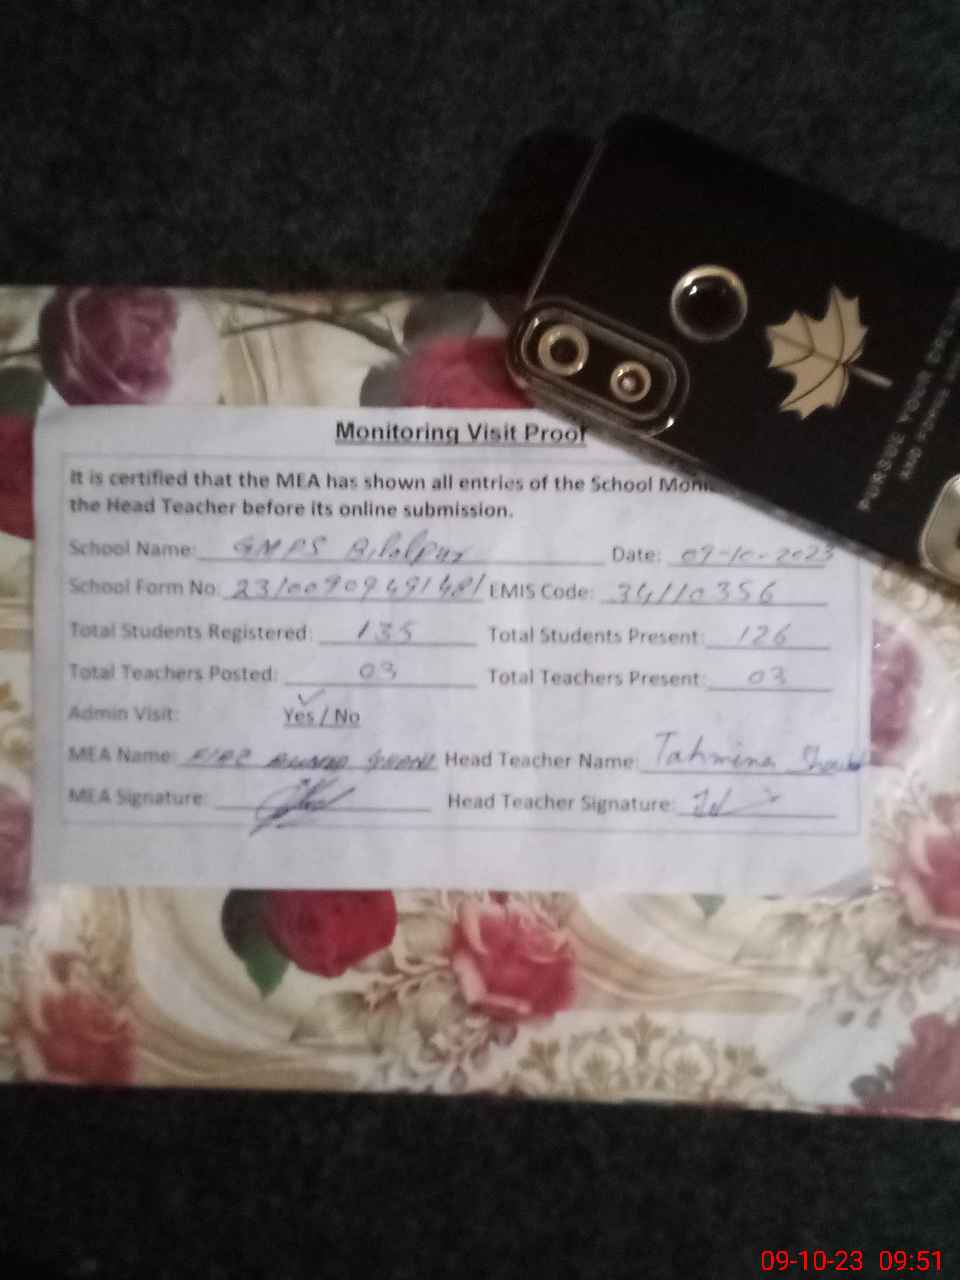 Monitoring Visit Proof
It is certified that the MEA has shown all entries of the School
the Head Teacher before its online submission.
School Name: GMPS Bilalpur Date: 09-10-2023
School Form No: 23100909491481 EMIS Code: 34110356
Total Students Registered: 135 Total Students Present: 126
Total Teachers Posted: 03 Total Teachers Present: 03
Admin Visit: Yes / No
MEA Name: Head Teacher Name: Tahmina
MEA Signature: Head Teacher Signature:
PURSUE YOUR
AND
09-10-23 09:51